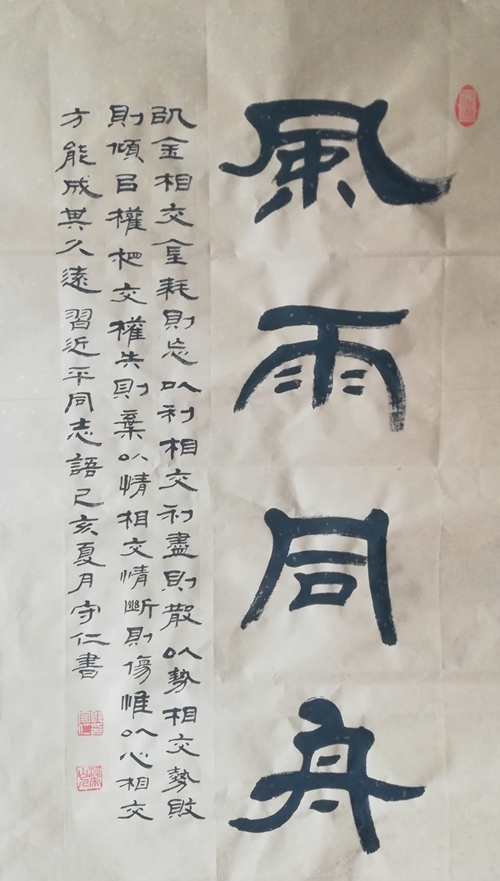 風雨同舟
㕥金相交金耗則忘以利相交利盡則散以勢相交勢敗
則傾㠯權相交權失則棄以情相交情斷則傷惟以心相交
方能成其久遠習近平同志語己亥夏月守仁書